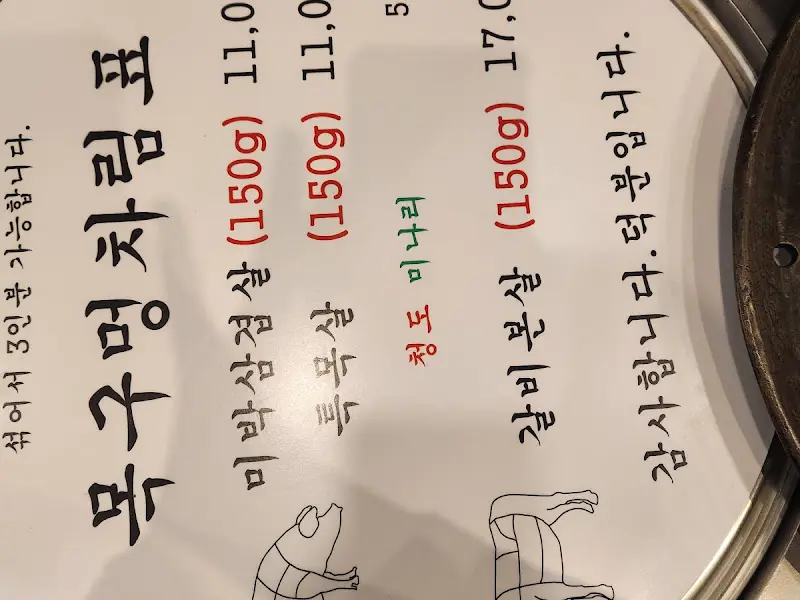 섞어서 3인분 가능합니다.
목구멍차림표
미박삼겹살 (150g) 11,0
특목살 (150g) 11,0
청도 미나리 5
갈비본살 (150g) 17,0
감사합니다. 덕분입니다.